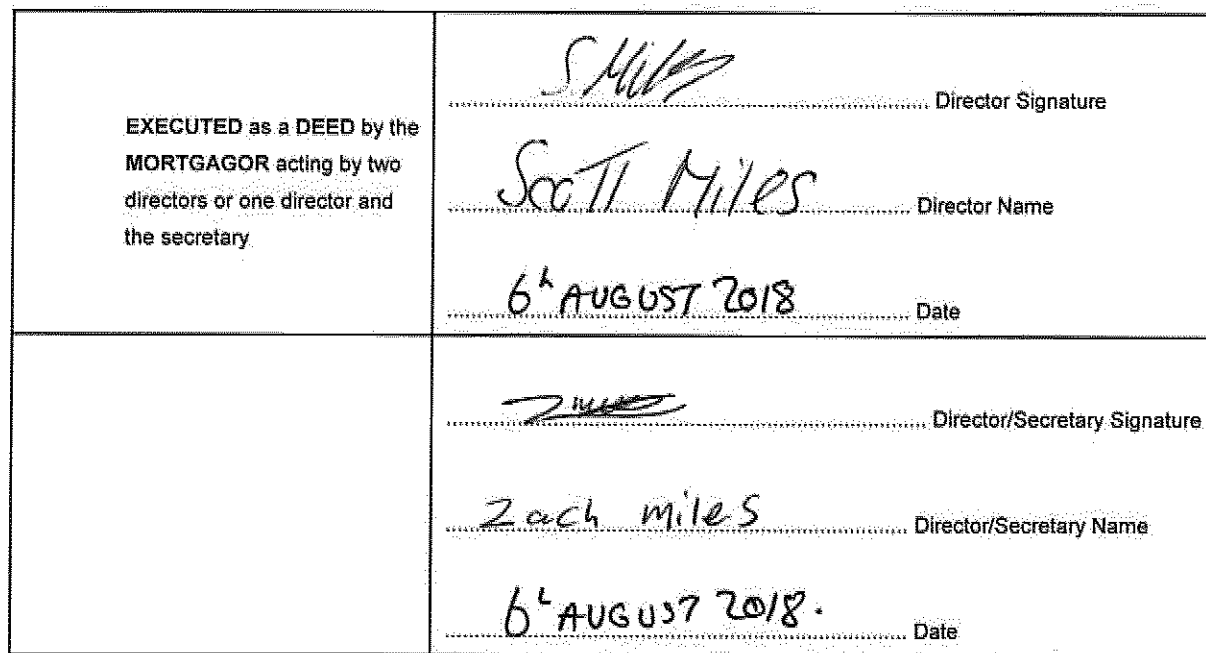 EXECUTED as a DEED by the
MORTGAGOR acting by two
directors or one director and
the secretary
S Miles
Director Signature
Scott Miles
Director Name
6h AUGUST 2018
Date
Director/Secretary Signature
Zach miles
Director/Secretary Name
6h AUGUST 2018.
Date